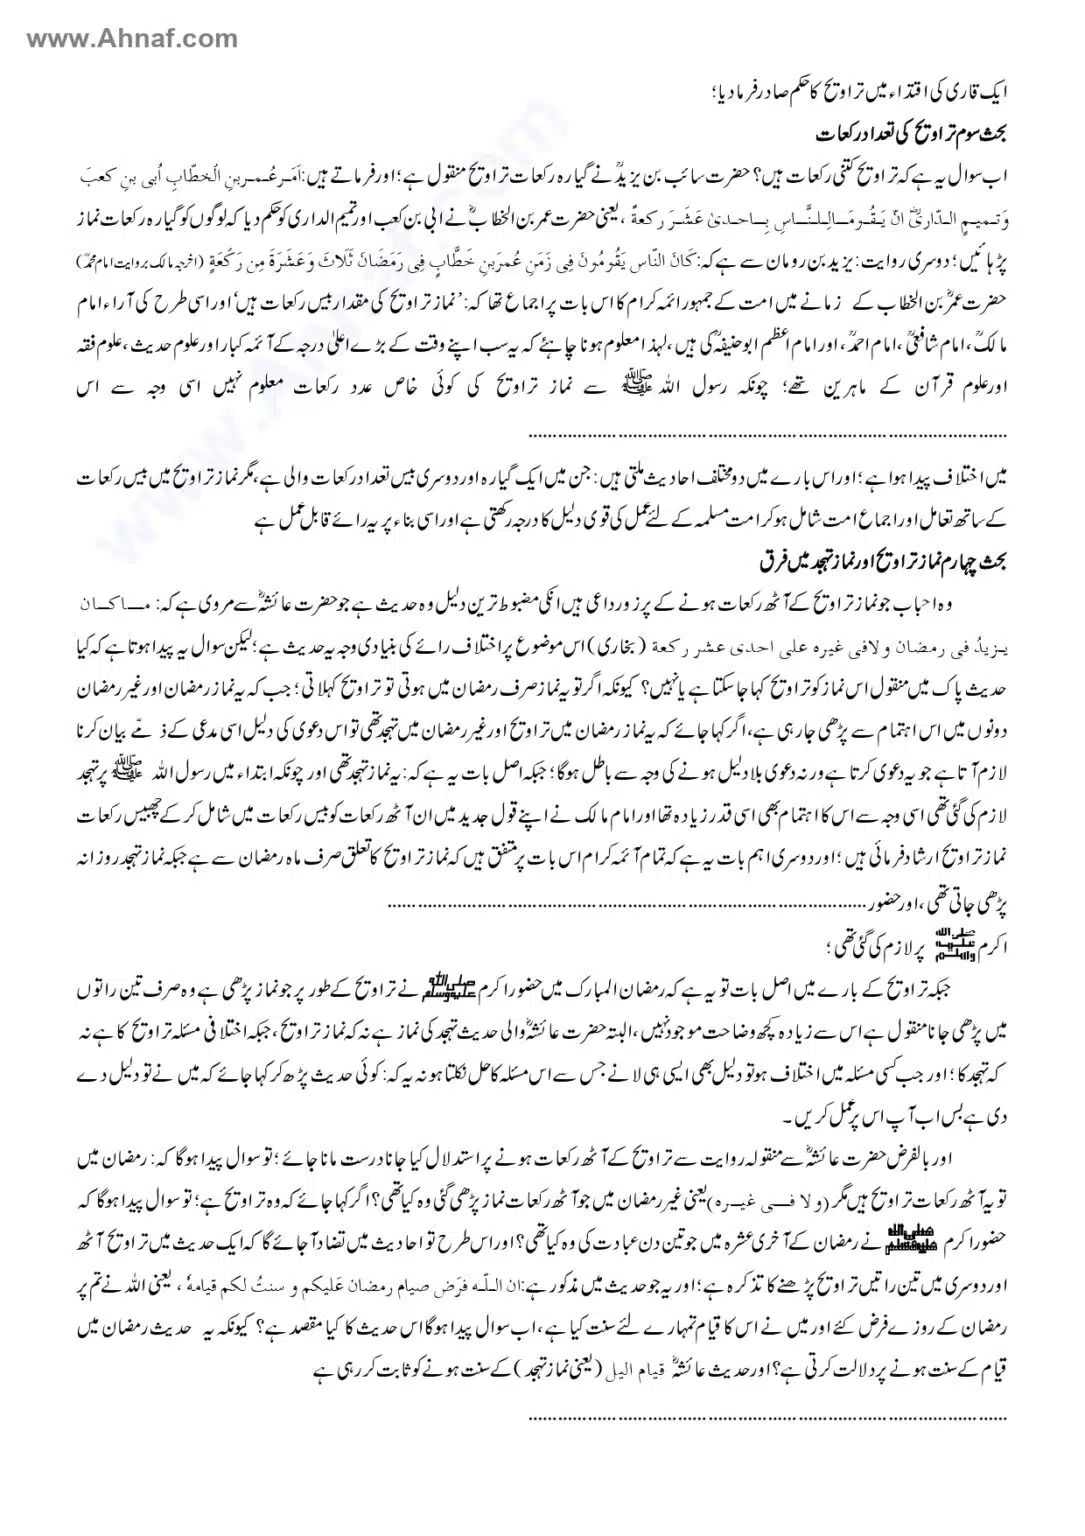 www.Ahnaf.com
ایک قاری کی اقتداء میں تراویح کا حکم صادر فرما دیا؛
بحث سوم تراویح کی تعداد رکعات
اب سوال یہ ہے کہ تراویح کتنی رکعات ہیں؟ حضرت سائب بن یزیدؒ نے گیارہ رکعات تراویح منقول ہے؛ اور فرماتے ہیں: اَمَرعُمربنِ الْخطّابِ اُبی بنِ کعبَ
وَتمیمِ الدّاریؓ انْ یَقُومَالِلنَّاسِ بِاحدیٰ عَشَرَ رکعةً ، یعنی حضرت عمر بن الخطابؓ نے ابی بن کعب اور تمیم الداری کو حکم دیا کہ لوگوں کو گیارہ رکعات نماز
پڑہائیں؛ دوسری روایت: یزید بن رومان سے ہے کہ: کَانَ النّاس یَقُومُونَ فِی زَمَنِ عُمرَبنِ خَطَّابٍ فِی رَمَضَانَ ثَلَاثَ وَعَشَرَةَ مِن رَکْعَةٍ (اخرجہ مالک بروایت امام محمدؒ)
حضرت عمرؓ بن الخطاب کے زمانے میں امت کے جمہور ائمہ کرام کا اس بات پر اجماع تھا کہ: ’نماز تراویح کی مقدار بیس رکعات ہیں‘ اور اسی طرح کی آراء امام
مالکؒ، امام شافعیؒ، امام احمدؒ، اور امام اعظم ابو حنیفہؒ کی ہیں، لہذا معلوم ہونا چاہئے کہ یہ سب اپنے وقت کے بڑے اعلیٰ درجہ کے آئمہ کبار اور علوم حدیث، علوم فقہ
اور علوم قرآن کے ماہرین تھے؛ چونکہ رسول اللہ ﷺ سے نماز تراویح کی کوئی خاص عدد رکعات معلوم نہیں اسی وجہ سے اس
................................................................................
میں اختلاف پیدا ہوا ہے؛ اور اس بارے میں دو مختلف احادیث ملتی ہیں: جن میں ایک گیارہ اور دوسری بیس تعداد رکعات والی ہے، مگر نماز تراویح میں بیس رکعات
کے ساتھ تعامل اور اجماع امت شامل ہو کر امت مسلمہ کے لئے عمل کی قوی دلیل کا درجہ رکھتی ہے اور اسی بناء پر یہ رائے قابل عمل ہے
بحث چہارم نماز تراویح اور نماز تہجد میں فرق
وہ احباب جو نماز تراویح کے آٹھ رکعات ہونے کے پرزور داعی ہیں انکی مضبوط ترین دلیل وہ حدیث ہے جو حضرت عائشہؓ سے مروی ہے کہ: ماکان
یزیدُ فی رمضان ولافی غیرہ علی احدی عشر رکعة (بخاری) اس موضوع پر اختلاف رائے کی بنیادی وجہ یہ حدیث ہے؛ لیکن سوال یہ پیدا ہوتا ہے کہ کیا
حدیث پاک میں منقول اس نماز کو تراویح کہا جا سکتا ہے یا نہیں؟ کیونکہ اگر تو یہ نماز صرف رمضان میں ہوتی تو تراویح کہلاتی؛ جب کہ یہ نماز رمضان اور غیر رمضان
دونوں میں اس اہتمام سے پڑھی جا رہی ہے، اگر کہا جائے کہ یہ نماز رمضان میں تراویح اور غیر رمضان میں تہجد تھی تو اس دعوی کی دلیل اسی مدعی کے ذمّے بیان کرنا
لازم آتا ہے جو یہ دعوی کرتا ہے ورنہ دعوی بلا دلیل ہونے کی وجہ سے باطل ہوگا؛ جبکہ اصل بات یہ ہے کہ: یہ نماز تہجد تھی اور چونکہ ابتداء میں رسول اللہ ﷺ پر تہجد
لازم کی گئی تھی اسی وجہ سے اس کا اہتمام بھی اسی قدر زیادہ تھا اور امام مالک نے اپنے قول جدید میں ان آٹھ رکعات کو بیس رکعات میں شامل کر کے چھبیس رکعات
نماز تراویح ارشاد فرمائی ہیں؛ اور دوسری اہم بات یہ ہے کہ تمام آئمہ کرام اس بات پر متفق ہیں کہ نماز تراویح کا تعلق صرف ماہ رمضان سے ہے جبکہ نماز تہجد روزانہ
پڑھی جاتی تھی، اور حضور ................................................................................
اکرم ﷺ پر لازم کی گئی تھی؛
جبکہ تراویح کے بارے میں اصل بات تو یہ ہے کہ رمضان المبارک میں حضور اکرم ﷺ نے تراویح کے طور پر جو نماز پڑھی ہے وہ صرف تین راتوں
میں پڑھی جانا منقول ہے اس سے زیادہ کچھ وضاحت موجود نہیں، البتہ حضرت عائشہؓ والی حدیث تہجد کی نماز ہے نہ کہ نماز تراویح، جبکہ اختلافی مسئلہ تراویح کا ہے نہ
کہ تہجد کا؛ اور جب کسی مسئلہ میں اختلاف ہو تو دلیل بھی ایسی ہی لانے جس سے اس مسئلہ کا حل نکلتا ہو نہ یہ کہ: کوئی حدیث پڑھ کر کہا جائے کہ میں نے تو دلیل دے
دی ہے بس اب آپ اس پر عمل کریں۔
اور بالفرض حضرت عائشہؓ سے منقولہ روایت سے تراویح کے آٹھ رکعات ہونے پر استدلال کیا جانا درست مانا جائے؛ تو سوال پیدا ہوگا کہ: رمضان میں
تو یہ آٹھ رکعات تراویح ہیں مگر (ولا فی غیرہ) یعنی غیر رمضان میں جو آٹھ رکعات نماز پڑھی گئی وہ کیا تھی؟ اگر کہا جائے کہ وہ تراویح ہے؛ تو سوال پیدا ہوگا کہ
حضور اکرم ﷺ نے رمضان کے آخری عشرہ میں جو تین دن عبادت کی وہ کیا تھی؟ اور اس طرح تو احادیث میں تضاد آ جائے گا کہ ایک حدیث میں تراویح آٹھ
اور دوسری میں تین راتیں تراویح پڑھنے کا تذکرہ ہے؛ اور یہ جو حدیث میں مذکور ہے: ان اللّٰہ فرَض صیام رمضان عَلیکم و سننتُ لکم قیامہٗ ، یعنی اللہ نے تم پر
رمضان کے روزے فرض کئے اور میں نے اس کا قیام تمہارے لئے سنت کیا ہے، اب سوال پیدا ہوگا اس حدیث کا کیا مقصد ہے؟ کیونکہ یہ حدیث رمضان میں
قیام کے سنت ہونے پر دلالت کرتی ہے؟ اور حدیث عائشہؓ قیام الیل (یعنی نماز تہجد) کے سنت ہونے کو ثابت کر رہی ہے
................................................................................